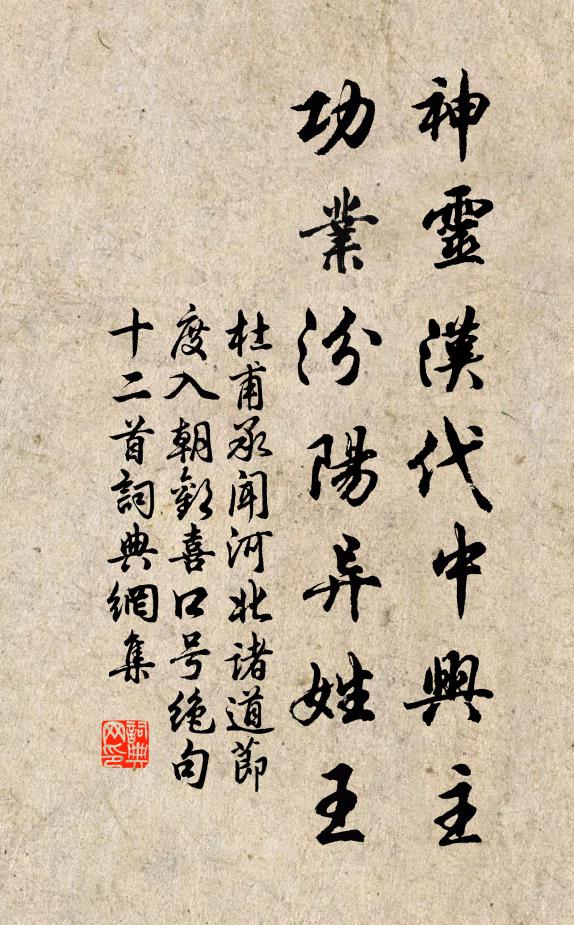 神靈漢代中興主
功業汾陽异姓王
杜甫承聞河北諸道節
度入朝歡喜口号絶句
十二首詞典網集
詞典
网印